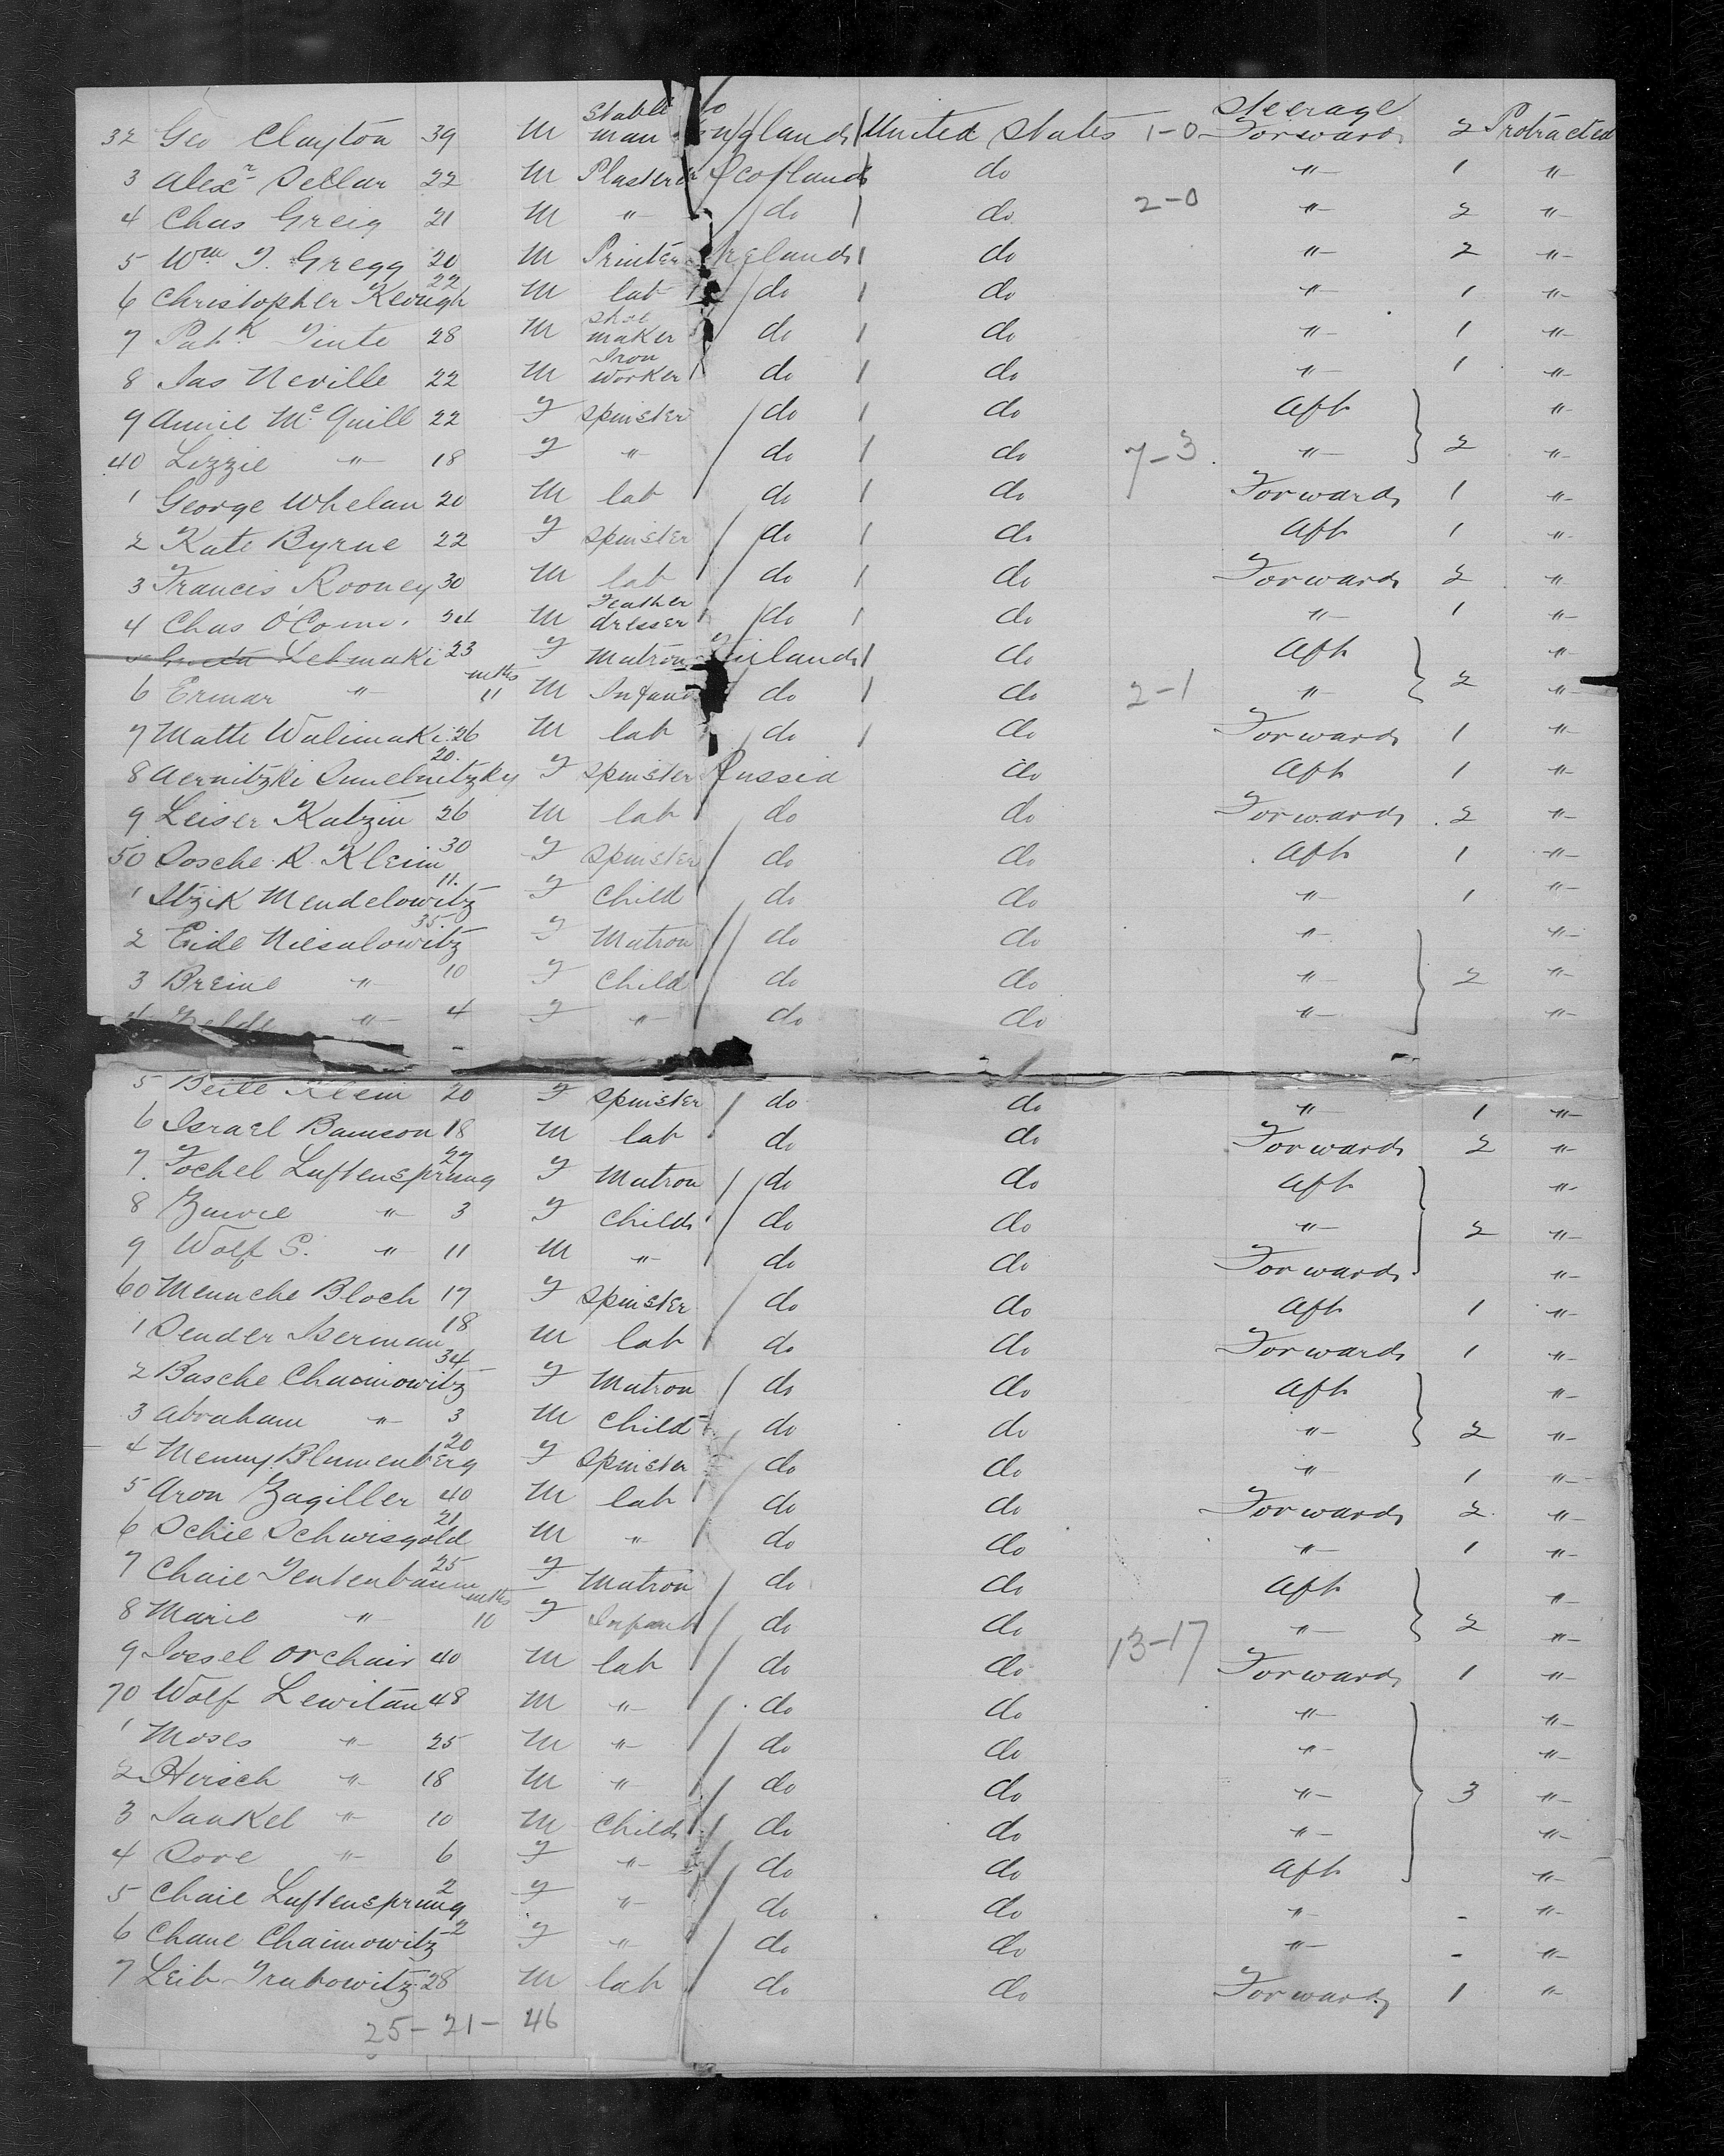 Steerage
32 Geo Clayton 39 M Stable man England United States 1-0 Forward 2 Protracted
3 Alexr Sellar 22 M Plasterer Scotland do " 1 "
4 Chas Greig 21 M " do do 2-0 " 2 "
5 Wm J. Gregg 20 M Printer Ireland do " 2 "
6 Christopher Keough 22 M lab do do " 1 "
7 Patk Tinte 28 M Shoe maker do do " 1 "
8 Jas Neville 22 M Iron Worker do do " 1 "
9 Annie McQuill 22 F Spinster do do Aft "
40 Lizzie " 18 F " do do 7-3 " 2 "
1 George Whelan 20 M lab do do Forward 1 "
2 Kate Byrne 22 F Spinster do do Aft 1 "
3 Francis Rooney 30 M lab do do Forward 2 "
4 Chas O'Conn. M Feather dresser do do " 1 "
Lehmaki 23 F Matron Finland do Aft "
6 Ermar " 11 mths M Infant do do 2-1 " 2 "
7 Matti Walimaki 26 M lab do do Forward 1 "
8 Aernitzki 20 F Spinster Russia do Aft 1 "
9 Leiser Katzin 26 M lab do do Forward 2 "
50 Sosche R. Klein 30 F Spinster do do Aft 1 "
1 Itzik Mendelowitz 11 F Child do do " 1 "
2 Eide Niesalowitz 35 F Matron do do " "
3 Breine " 10 F Child do do " 2 "
4 " 4 F " do do " "
5 Beile Klein 20 F Spinster do do " 1 "
6 Israel Bamson 18 M lab do do Forward 2 "
7 Jochel Luftensprung 27 F Matron do do Aft "
8 " 3 F Child do do " 2 "
9 Wolf S. " 11 M " do do Forward "
60 Menuche Bloch 17 F Spinster do do Aft 1 "
1 Sender Iserman 18 M lab do do Forward 1 "
2 Basche Chaimowitz 34 F Matron do do Aft "
3 Abraham " 3 M Child do do " 2 "
4 Menny Blumenberg 20 F Spinster do do " 1 "
5 Aron Zagiller 40 M lab do do Forward 2 "
6 Schie Schwisgold 21 M " do do " 1 "
7 Chaie Tentenbaum 25 F Matron do do Aft "
8 Marie " 10 mths F Infant do do 13-17 " 2 "
9 Jossel Orchair 40 M lab do do Forward 1 "
70 Wolf Lewitan 48 M " do do " "
1 Moses " 25 M " do do " "
2 Hirsch " 18 M " do do " 3 "
3 Jankel " 10 M Child do do " "
4 Sore " 6 F " do do Aft "
5 Chaie Luftensprung 2 F " do do " - "
6 Chane Chaimowitz 2 F " do do " - "
7 Leib Trabowitz 28 M lab do do Forward 1 "
25-21-46